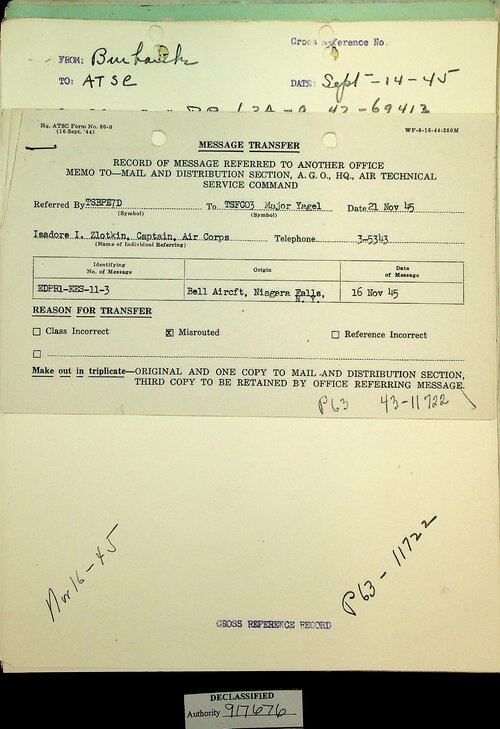 Cross Reference No.
FROM: Burbank
TO: ATSC DATE: Sept-14-45
42-69413
Hq. ATSC Form No. 80-9
(16 Sept. '44)
WF-9-16-44-250M
MESSAGE TRANSFER
RECORD OF MESSAGE REFERRED TO ANOTHER OFFICE
MEMO TO—MAIL AND DISTRIBUTION SECTION, A. G. O., HQ., AIR TECHNICAL
SERVICE COMMAND
Referred By TSBPE7D To TSFCO3 Major Yagel Date 21 Nov 45
(Symbol) (Symbol)
Isadore I. Zlotkin, Captain, Air Corps Telephone 3-5343
(Name of Individual Referring)
Identifying
No. of Message
Origin
Date
of Message
EDPR1-EES-11-3 Bell Aircft, Niagara Falls, N. Y. 16 Nov 45
REASON FOR TRANSFER
Class Incorrect x Misrouted Reference Incorrect
Make out in triplicate—ORIGINAL AND ONE COPY TO MAIL AND DISTRIBUTION SECTION,
THIRD COPY TO BE RETAINED BY OFFICE REFERRING MESSAGE.
P63 43-11722
Nov 16-45
P63-11722
CROSS REFERENCE RECORD
DECLASSIFIED
Authority 917676